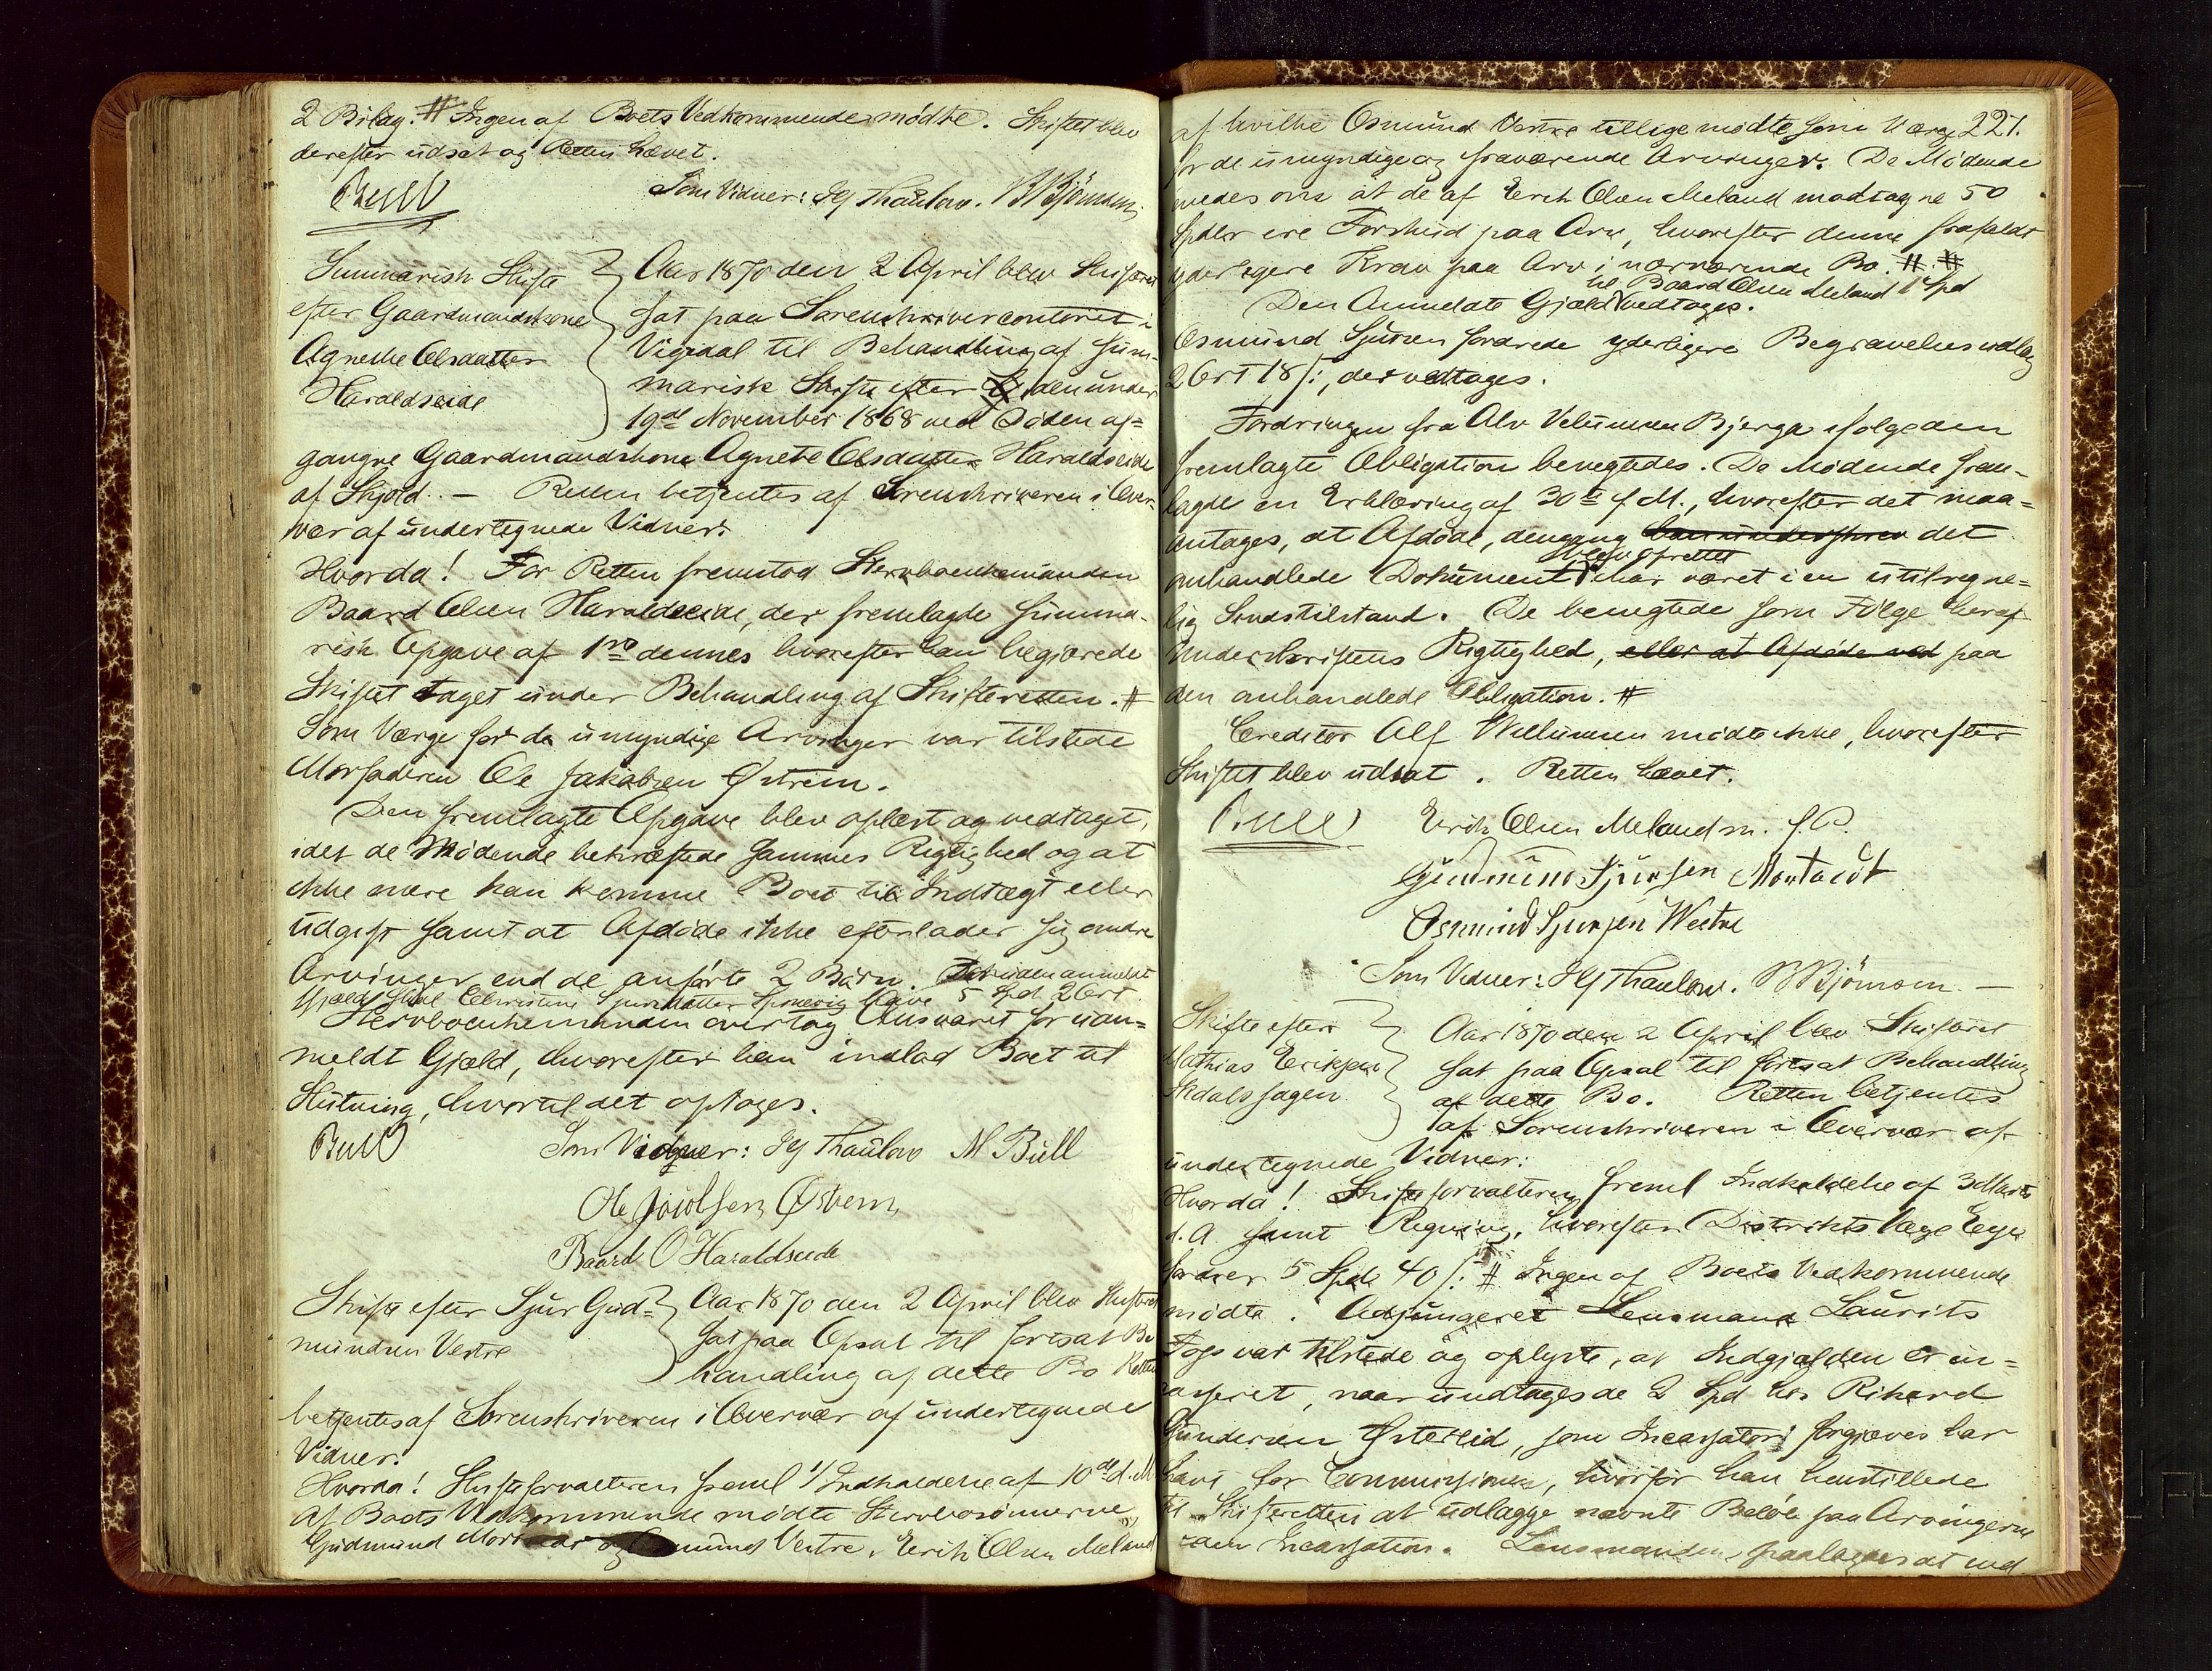 2 Bilag. # Ingen af Boets Vedkommende mødte. Skiftet blev
derefter udsat og Retten hævet.
Bull
Som Vidner: Hg Thaulow. B Bjørnsen,
Summarisk Skifte
efter Gaardmandskone
Agnethe Olsdatter
Haraldseide
Aar 1870 den 2 April blev Skifteret
sat paa Sorenskrivercontoret i
Vigidal til Behandling af Sum-
marisk Skifte efter den under
19de November 1868 ved Døden af=
gangne Gaardmandskone Agnete Olsdatter Haraldseide
af Skjold. — Retten betjentes af Sorenskriveren i Over-
vær af undertegnede Vidner:
Hvorda! For Retten fremstod Stervboenkemanden
Baard Olsen Haraldseide, der fremlagde Summa-
risk Opgave af 1ste dennes hvorefter han begjærede
Skiftet taget under Behandling af Skifteretten. #
Som Værge for de umyndige Arvinger var tilstede
Morfaderen Ole Jakobsen Østrem.
Den fremlagte Opgave blev oplæst og vedtaget,
idet de Mødende bekræftede sammes Rigtighed og at
ikke mere kan komme Boet til Indtægt eller
udgift samt at Afdøde ikke efterlader sig andre
Arvinger end de anførte 2 Børn. Foruden anmeldt
Gjæld skal Christine Sjursdatter have 5 Spd 2 Ort
Stervboenkemanden overtog Ansvaret for uan=
meldt Gjæld, hvorefter han indlod Boet til
Slutning, hvortil det optages.
Bull
Som Vidner: Hg Thaulow M Bull
Ole Jacobsen Østrem
Baard O Haraldseide
Skifte efter Sjur Gud=
mundsen Vestre
Aar 1870 den 2 April blev Skifteret
sat paa Opsal til fortsat Be
handling af dette Bo Retten
betjentes af Sorenskriveren i Overvær af undertegnede
Vidner:
Hvorda! Skifteforvalteren freml 1/ Indkaldelse af 10de d. M
Af Boets Vedkommende mødte Stervbosønnerne
Gudmund og Osmund Vestre, Erik Olsen Meland
221.
af hvilke Osmund Vestre tillige mødte som Værge
for de umyndige og fraværende Arvinger. De Mødende
enedes om at de af Erik Olsen Meland modtagne 50
Spdlr ere Forskud paa Arv, hvorefter denne frafaldt
yderligere Krav paa Arv i nærværende Bo. # #
til Baard Olsen Meland 1 Spd
Den Anmeldte Gjæld vedtages.
Osmund Sjursen fordrede yderligere Begravelsesudlæg
2 Ort 18 s:, der vedtages.
Fordringen fra Alv Velumsen Bjerga ifølge den
fremlagte Obligation benegtedes. De Mødende frem-
lagde en Erklæring af 30te f M., hvorefter det maa=
antages, at Afdøde, dengang han underskrev det
blev oprettet
omhandlede Dokument har været i en utilregne=
lig Sindstilstand. De benegtede som Følge heraf
Underskriftens Rigtighed, eller at Afdøde ved paa
den omhandlede Obligation. #
Creditor Alf Willumsen mødte ikke, hvorefter
Skiftet blev udsat. Retten hævet.
Bull
Erik Olsen Meland m. f. P.
Gudmund Sjursen
Osmund Sjursen Westre
Som Vidner: Hg Thaulow. B Bjørnson. —
Skifte efter
Mathias Eriksen
Aar 1870 den 2 April blev Skifteret
sat paa Opsal til fortsat Behandling
af dette Bo. Retten betjentes
af Sorenskriveren i Overvær af
undertegnede Vidner:
Hvorda! Skifteforvalteren freml Indkaldelse af 3 Marts
d. A samt Regning, hvorefter Distriktslæge
fordrer 5 Spd 40 s: # Ingen af Boets Vedkommende
mødte. Adjungeret Lensmand Laurits
var tilstede og oplyste, at Indgjælden er in=
casseret, naar undtages de 2 Spd hos Rikard
Gundersen Østerlid, som Incassator forgjæves har
havt for Commissionen, hvorfor han henstillede
til Skifteretten at udlægge nævnte Beløb paa Arvingerne
uden Incassation. Lensmanden paalagdes at ind